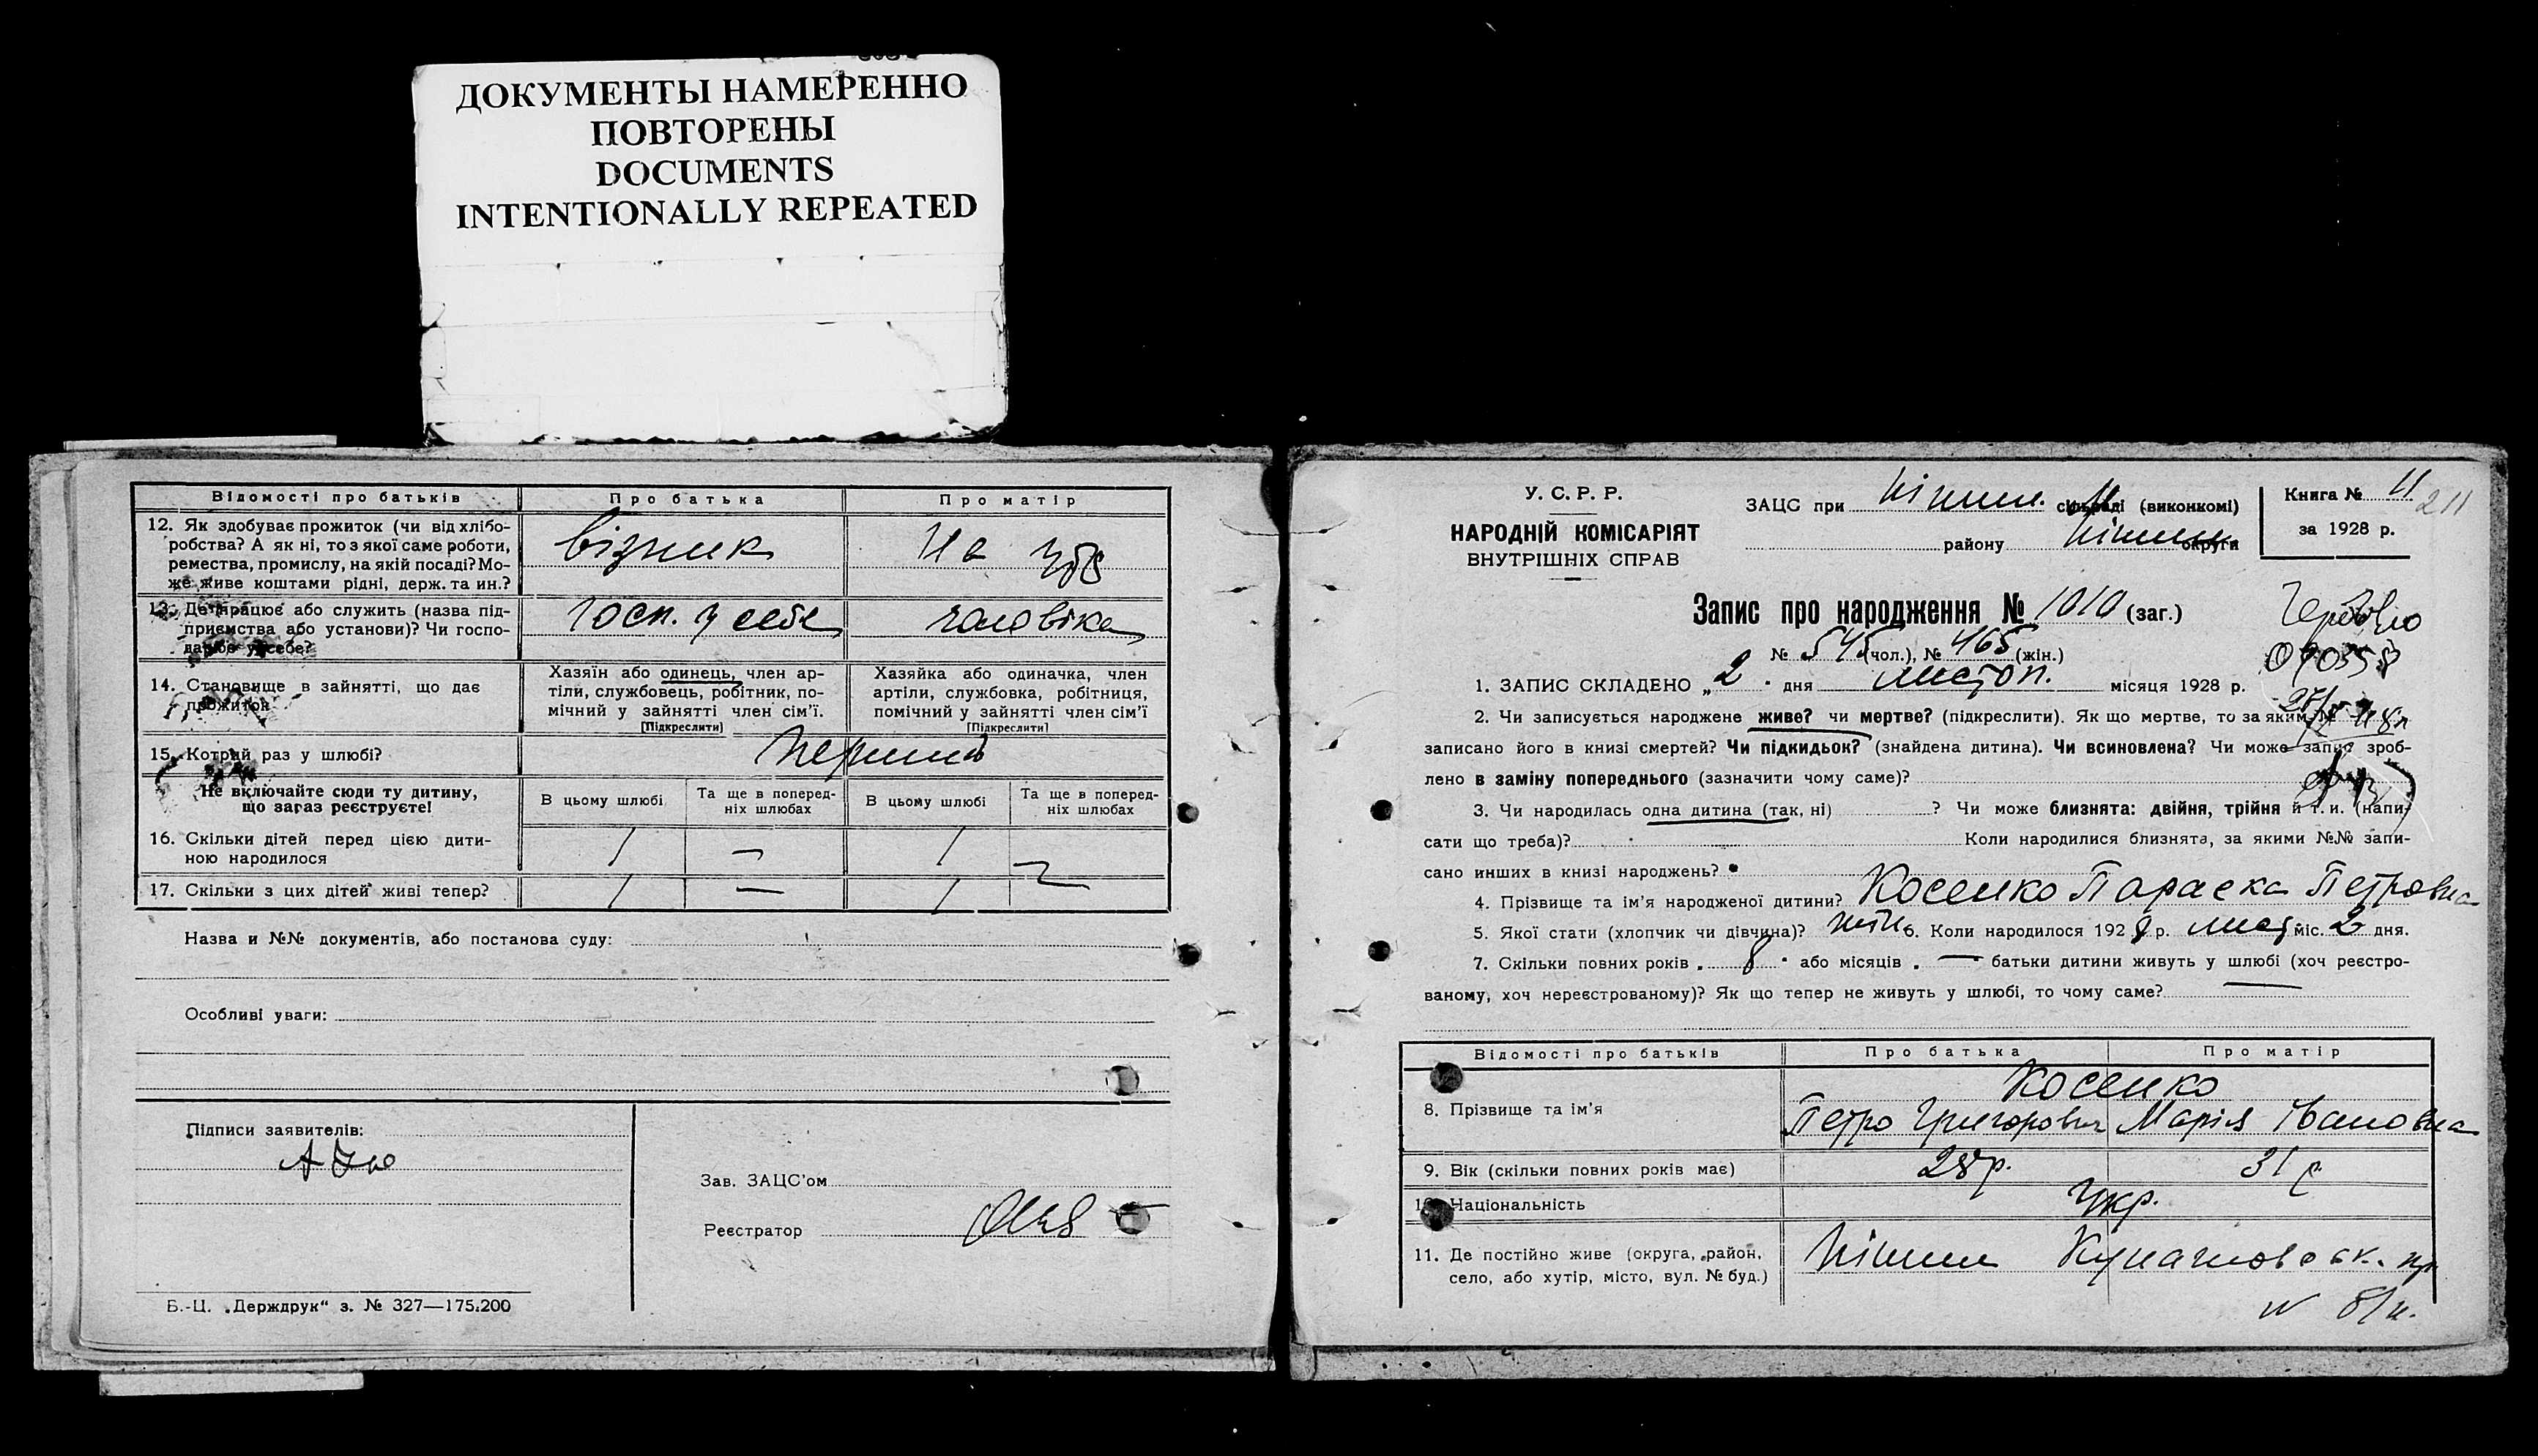 ДОКУМЕНТЫ НАМЕРЕННО
ПОВТОРЕНЫ
DOCUMENTS
INTENTIONALLY REPEATED
Відомості про батьків Про батька Про матір
12. Як здобуває прожиток (чи від хлібо- візник На
робства? А як ні, то з якої саме роботи,
ремества, промислу, на якій посаді? Мо-
же живе коштами рідні, держ. та ин.?
13. Де працює або служить (назва під- Госп. у себе чоловіка
приємства або установи)? Чи госпо-
дарює у себе?
14. Становище в зайнятті, що дає
прожиток
Хазяїн або одинець, член ар-
тіли, службовець, робітник, по-
мічний у зайнятті член сім'ї.
[Підкреслити]
Хазяйка або одиначка, член
артіли, службовка, робітниця,
помічний у зайнятті член сім'ї
[Підкреслити]
15. Котрий раз у шлюбі? перший
Не включайте сюди ту дитину,
що зараз реєструєте!
В цьому шлюбі Та ще в поперед-
ніх шлюбах В цьому шлюбі Та ще в поперед-
ніх шлюбах
16. Скільки дітей перед цією дити- 1 — 1 —
ною народилося
17. Скільки з цих дітей живі тепер? 1 — 1
Назва и №№ документів, або постанова суду:
Особливі уваги:
Підписи заявителів:
Зав. ЗАЦС'ом
Реєстратор
Б.-Ц. „Держдрук" з. № 327—175.200
У. С. Р. Р.
НАРОДНІЙ КОМІСАРІЯТ
ВНУТРІШНІХ СПРАВ
ЗАЦС при Ніжин. сільраді (виконкомі)
району Ніжин округи
Книга № 11
211
за 1928 р.
Запис про народження № 1010 (заг.)
№ 545 (чол.), № 465 (жін.)
1. ЗАПИС СКЛАДЕНО „2" дня листоп. місяця 1928 р.
2. Чи записується народжене живе? чи мертве? (підкреслити). Як що мертве, то за яким №
записано його в книзі смертей? Чи підкидьок? (знайдена дитина). Чи всиновлена? Чи може запис зроб-
лено в заміну попереднього (зазначити чому саме)?
3. Чи народилась одна дитина (так, ні) ? Чи може близнята: двійня, трійня й т. и. (напи-
сати що треба)? Коли народилися близнята, за якими №№ запи-
сано инших в книзі народжень?
4. Прізвище та ім'я народженої дитини? Косенко Параска Петровна
5. Якої стати (хлопчик чи дівчина)? жін 6. Коли народилося 1928 р. лист міс. 2 дня.
7. Скільки повних років „8" або місяців „—" батьки дитини живуть у шлюбі (хоч реєстро-
ваному, хоч нереєстрованому)? Як що тепер не живуть у шлюбі, то чому саме? —
Відомості про батьків Про батька Про матір
Косенко
8. Прізвище та ім'я Петро Григорович Марія Івановна
9. Вік (скільки повних років має) 28 р. 31 р
10. Національність Укр.
11. Де постійно живе (округа, район, Ніжин
село, або хутір, місто, вул. № буд.)